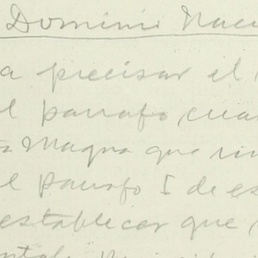 Dominio Naci
a precisar el
el parrafo, cua
ta Magna que
el parrafo I de es
establecer que